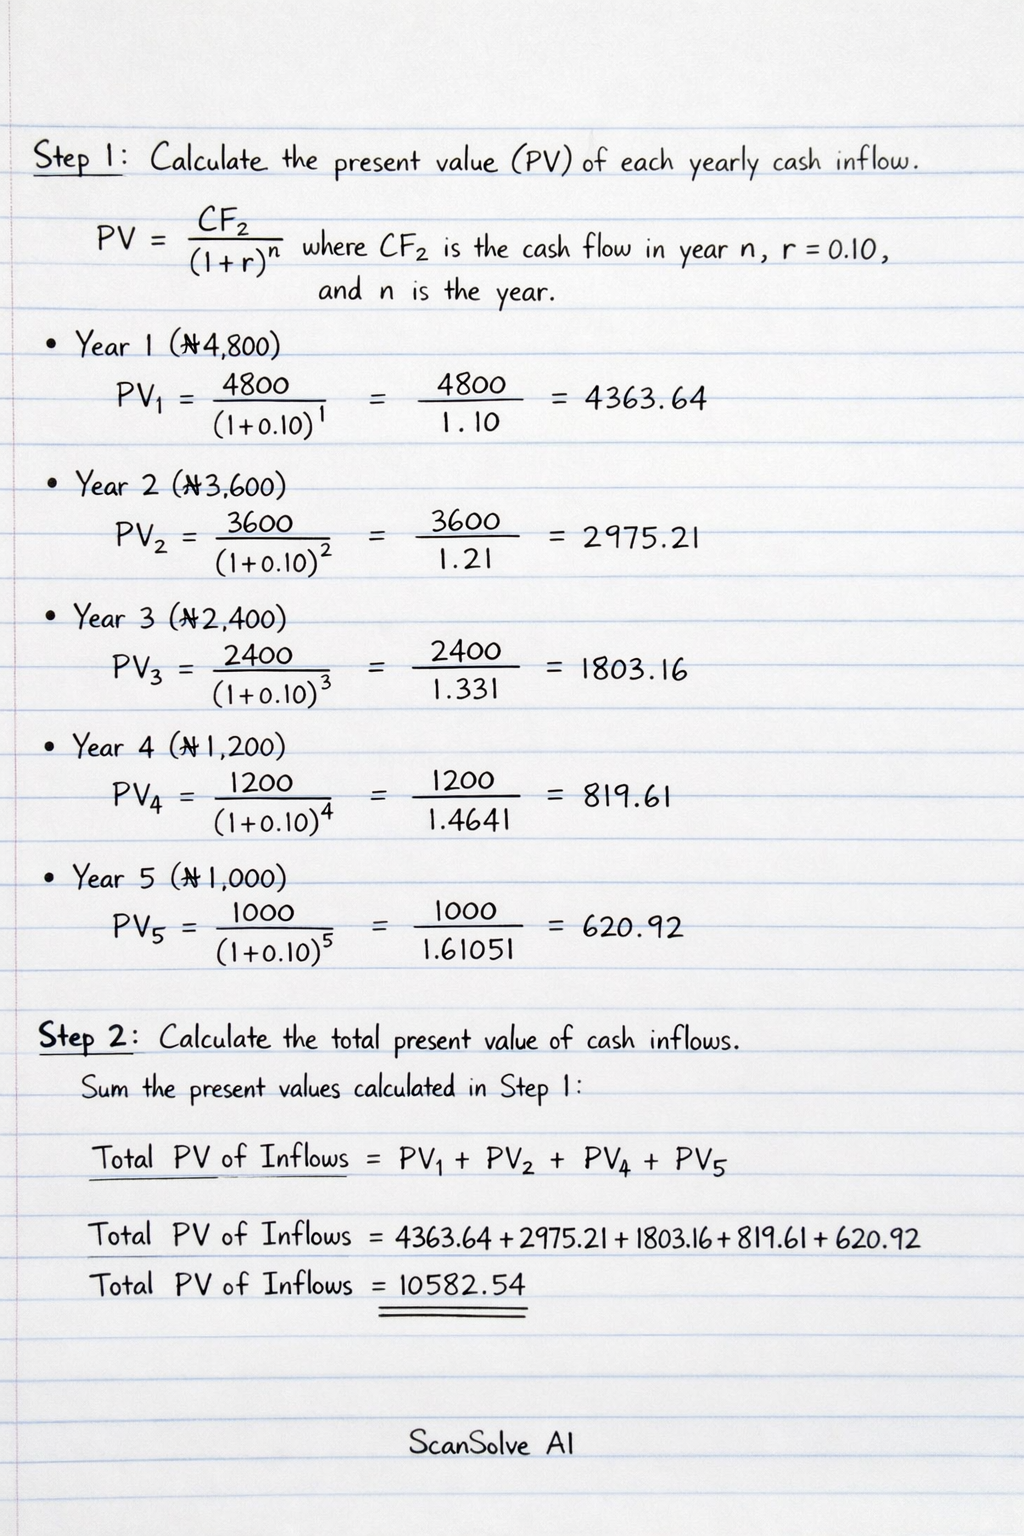 Step 1: Calculate the present value (PV) of each yearly cash inflow.
PV = CF₂ / (1+r)ⁿ where CF₂ is the cash flow in year n, r = 0.10,
and n is the year.
• Year 1 (₦4,800)
PV₁ = 4800 / (1+0.10)¹ = 4800 / 1.10 = 4363.64
• Year 2 (₦3,600)
PV₂ = 3600 / (1+0.10)² = 3600 / 1.21 = 2975.21
• Year 3 (₦2,400)
PV₃ = 2400 / (1+0.10)³ = 2400 / 1.331 = 1803.16
• Year 4 (₦1,200)
PV₄ = 1200 / (1+0.10)⁴ = 1200 / 1.4641 = 819.61
• Year 5 (₦1,000)
PV₅ = 1000 / (1+0.10)⁵ = 1000 / 1.61051 = 620.92
Step 2: Calculate the total present value of cash inflows.
Sum the present values calculated in Step 1:
Total PV of Inflows = PV₁ + PV₂ + PV₄ + PV₅
Total PV of Inflows = 4363.64 + 2975.21 + 1803.16 + 819.61 + 620.92
Total PV of Inflows = 10582.54
ScanSolve AI